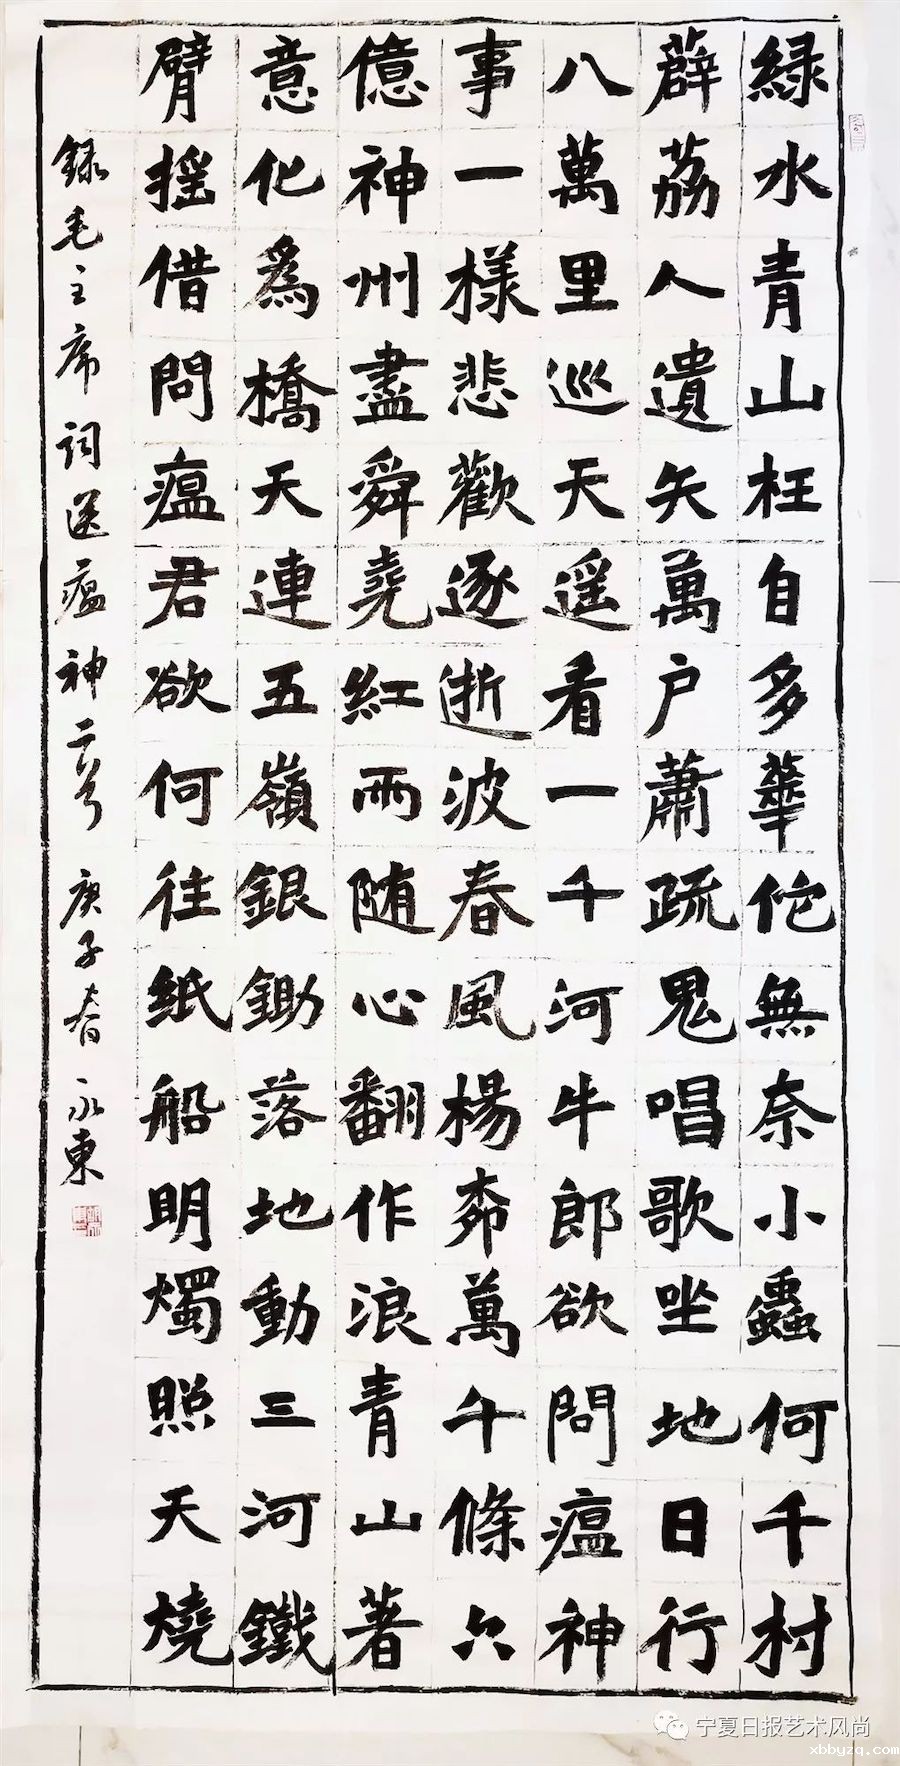 綠水青山枉自多華佗無奈小蟲何千村
薜荔人遺矢萬户蕭疏鬼唱歌坐地日行
八萬里巡天遥看一千河牛郎欲問瘟神
事一樣悲歡逐逝波春風楊柳萬千條六
億神州盡舜堯紅雨随心翻作浪青山著
意化爲橋天連五嶺銀鋤落地動三河鐵
臂摇借問瘟君欲何往紙船明燭照天燒
録毛主席詞送瘟神二首 庚子春 永東
宁夏日报艺术风尚
xbbyzq.com